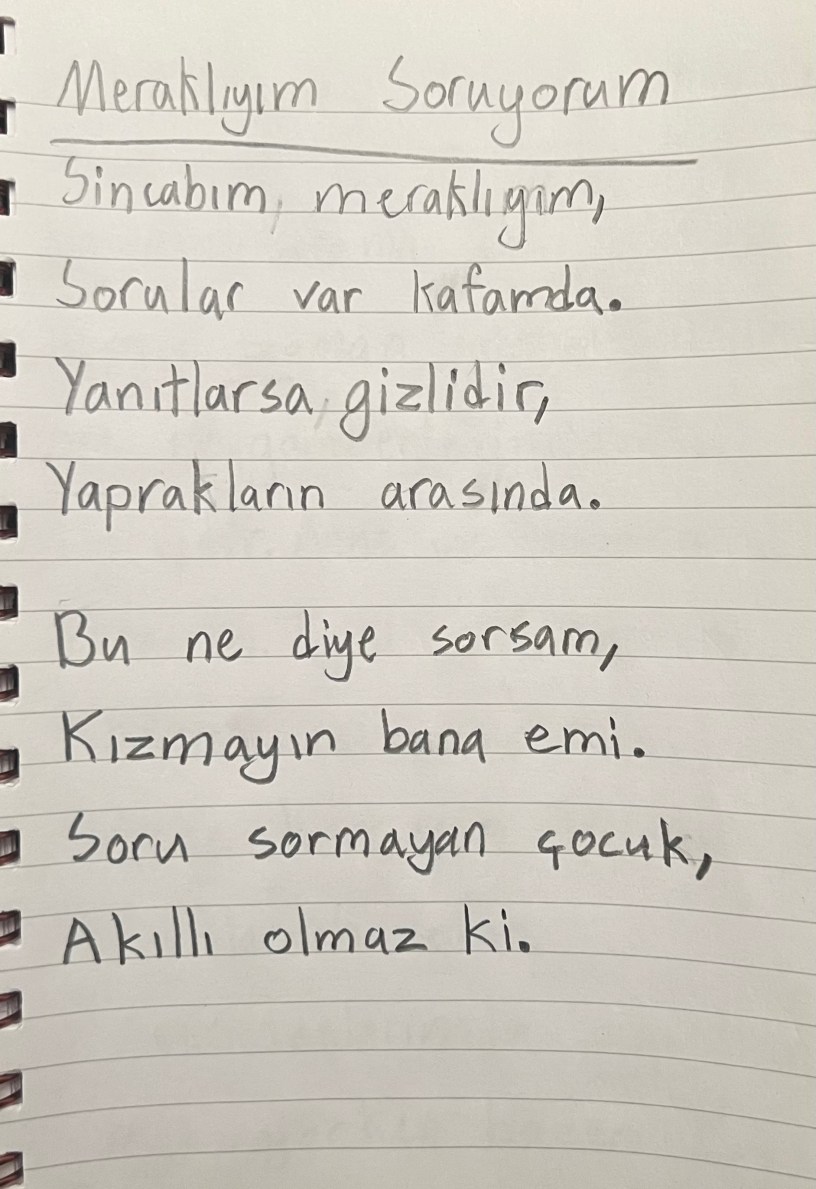 Meraklıyım Soruyorum
Sincabım, meraklıyım,
Sorular var kafamda.
Yanıtlarsa, gizlidir,
Yaprakların arasında.
Bu ne diye sorsam,
Kızmayın bana emi.
Soru sormayan çocuk,
Akıllı olmaz ki.